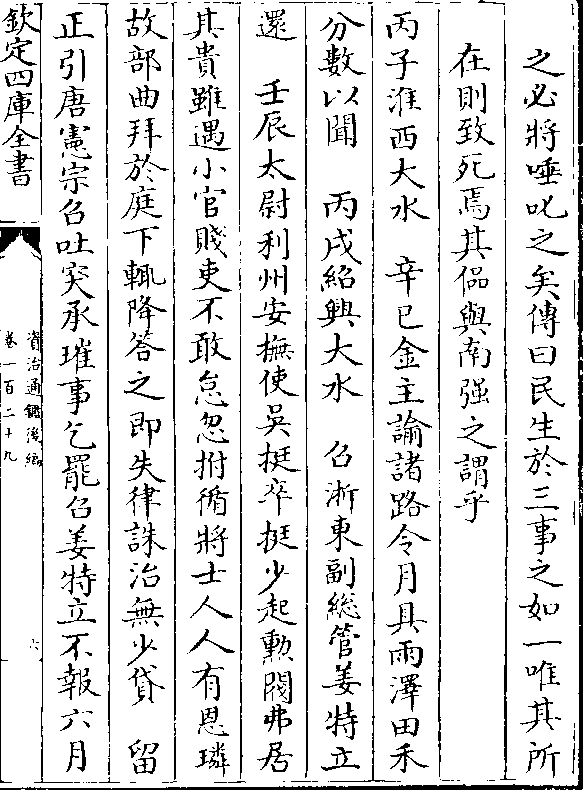 之必將唾叱之矣傳曰民生於三事之如一唯其所
在則致死焉其偘與南强之謂乎
丙子淮西大水　辛巳金主諭諸路令月具雨澤田禾
分數以聞　丙戌紹興大水　召浙東副総管姜特立
還　壬辰太尉利州安撫使吳挺卒挺少起勲閥弗居
其貴雖遇小官賤吏不敢怠忽拊循將士人人有恩璘
故部曲拜於庭下輒降答之即失律誅治無少貸　留
正引唐憲宗召吐突承璀事乞罷召姜特立不報六月
欽定四庫全書
資治通鑑後編
卷一百二十九
六